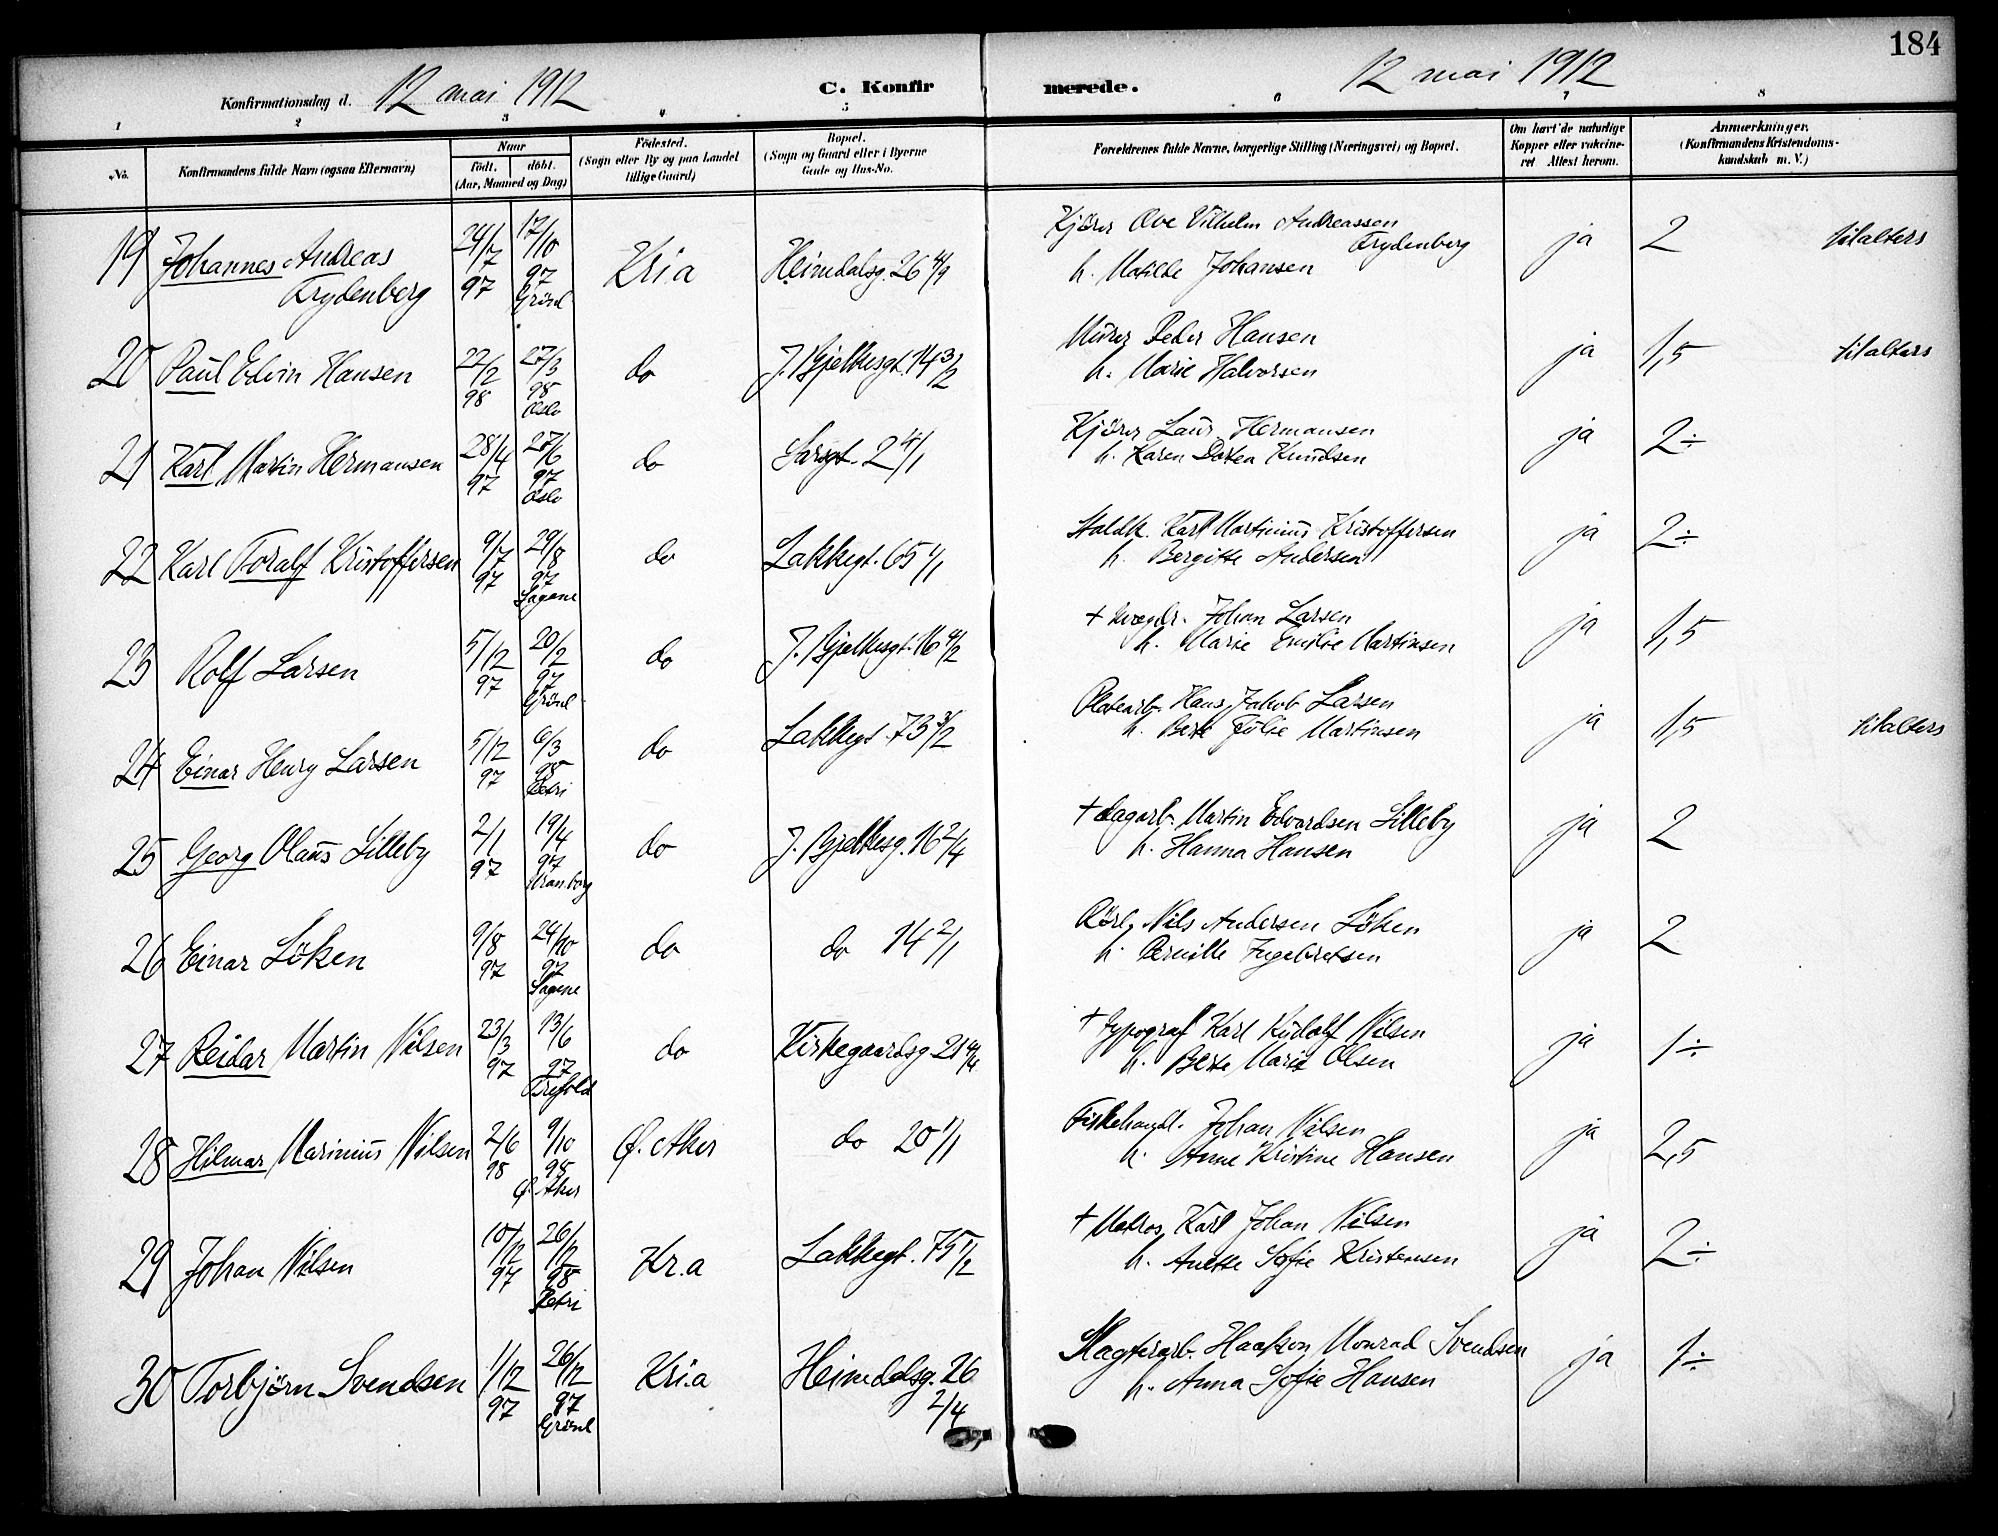 184
Konfirmationsdag d. 12 mai 1912 C. Konfirmerede. 12 mai 1912
1 2 3 4 5 6 7 8
No. Konfirmandens fulde Navn (ogsaa Efternavn) Naar født. døbt. (Aar, Maaned og Dag) Fødested. (Sogn eller By og paa Landet tillige Gaard) Bopæl. (Sogn og Gaard eller i Byerne Gade og Hus-No. Forældrenes fulde Navne, borgerlige Stilling (Næringsvei) og Bopæl. Om havt de naturlige Kopper eller vakcineret Attest herom. Anmærkninger. (Konfirmandens Kristendomskundskab m. V.)
19 Johannes Andreas Frydenberg 24/7 97 17/10 97 Grönl Kri.a Heimdalsg. 26 4/9 Kjörer Ove Vilhelm Andreassen Frydenberg
h. Matilde Johansen ja 2 tilalters
20 Paul Edvin Hansen 22/2 98 27/3 98 Oslo do J. Bjelkesgt. 14 3/2 Murer Peder Hansen
h. Marie Halvorsen ja 1,5 tilalters
21 Karl Martin Hermansen 28/4 97 27/6 97 Oslo do Sarsgt. 2 4/1 Kjörer Laur. Hermansen
h. Karen Dortea Knudsen ja 2÷
22 Karl Toralf Kristoffersen 9/7 97 29/8 97 Sagene do Lakkegt. 65 1/1 Staldk. Karl Martinius Kristoffersen
h. Bergitte Andersen ja 2÷
23 Rolf Larsen 5/12 97 20/2 97 Grönl do J. Bjelkesgt. 16 4/2 † Johan Larsen
h. Marie Emilie Martinsen ja 1,5
24 Einar Henry Larsen 5/12 97 6/3 98 Petri do Lakkegt. 73 3/2 Platearb. Hans Jakob Larsen
h. Berte Julie Martinsen ja 1,5 tilalters
25 Georg Olaus Lilleby 2/1 97 19/4 97 Uranborg do J. Bjelkesg. 16 2/4 † dagarb. Martin Edvardsen Lilleby
h. Hanna Hansen ja 2
26 Einar Löken 9/8 97 24/10 97 Sagene do do 14 2/1 Rörl. Nils Andersen Löken
h. Pernille Ingebretsen ja 2
27 Reidar Martin Nilsen 23/3 97 13/6 97 Trefold do Kirkegaardsg. 21 4/4 † Typograf Karl Rudolf Nilsen
h. Berte Marie Olsen ja 1÷
28 Hilmar Marinius Nilsen 2/6 98 9/10 98 Ø. Aker Ø. Aker do 20 1/1 Fiskehandl. Johan Nilsen
h. Anne Kristine Hansen ja 2,5
29 Johan Nilsen 10/12 97 26/12 98 Petri Kr.a Lakkegt. 75 1/2 † Matros Karl Johan Nilsen
h. Anette Sofie Kristensen ja 2÷
30 Torbjørn Svendsen 1/12 97 26/12 97 Grönl Kri.a Heimdalsg. 26 2/4 Slagterarb. Haakon Monrad Svendsen
h. Anna Sofie Hansen ja 1÷